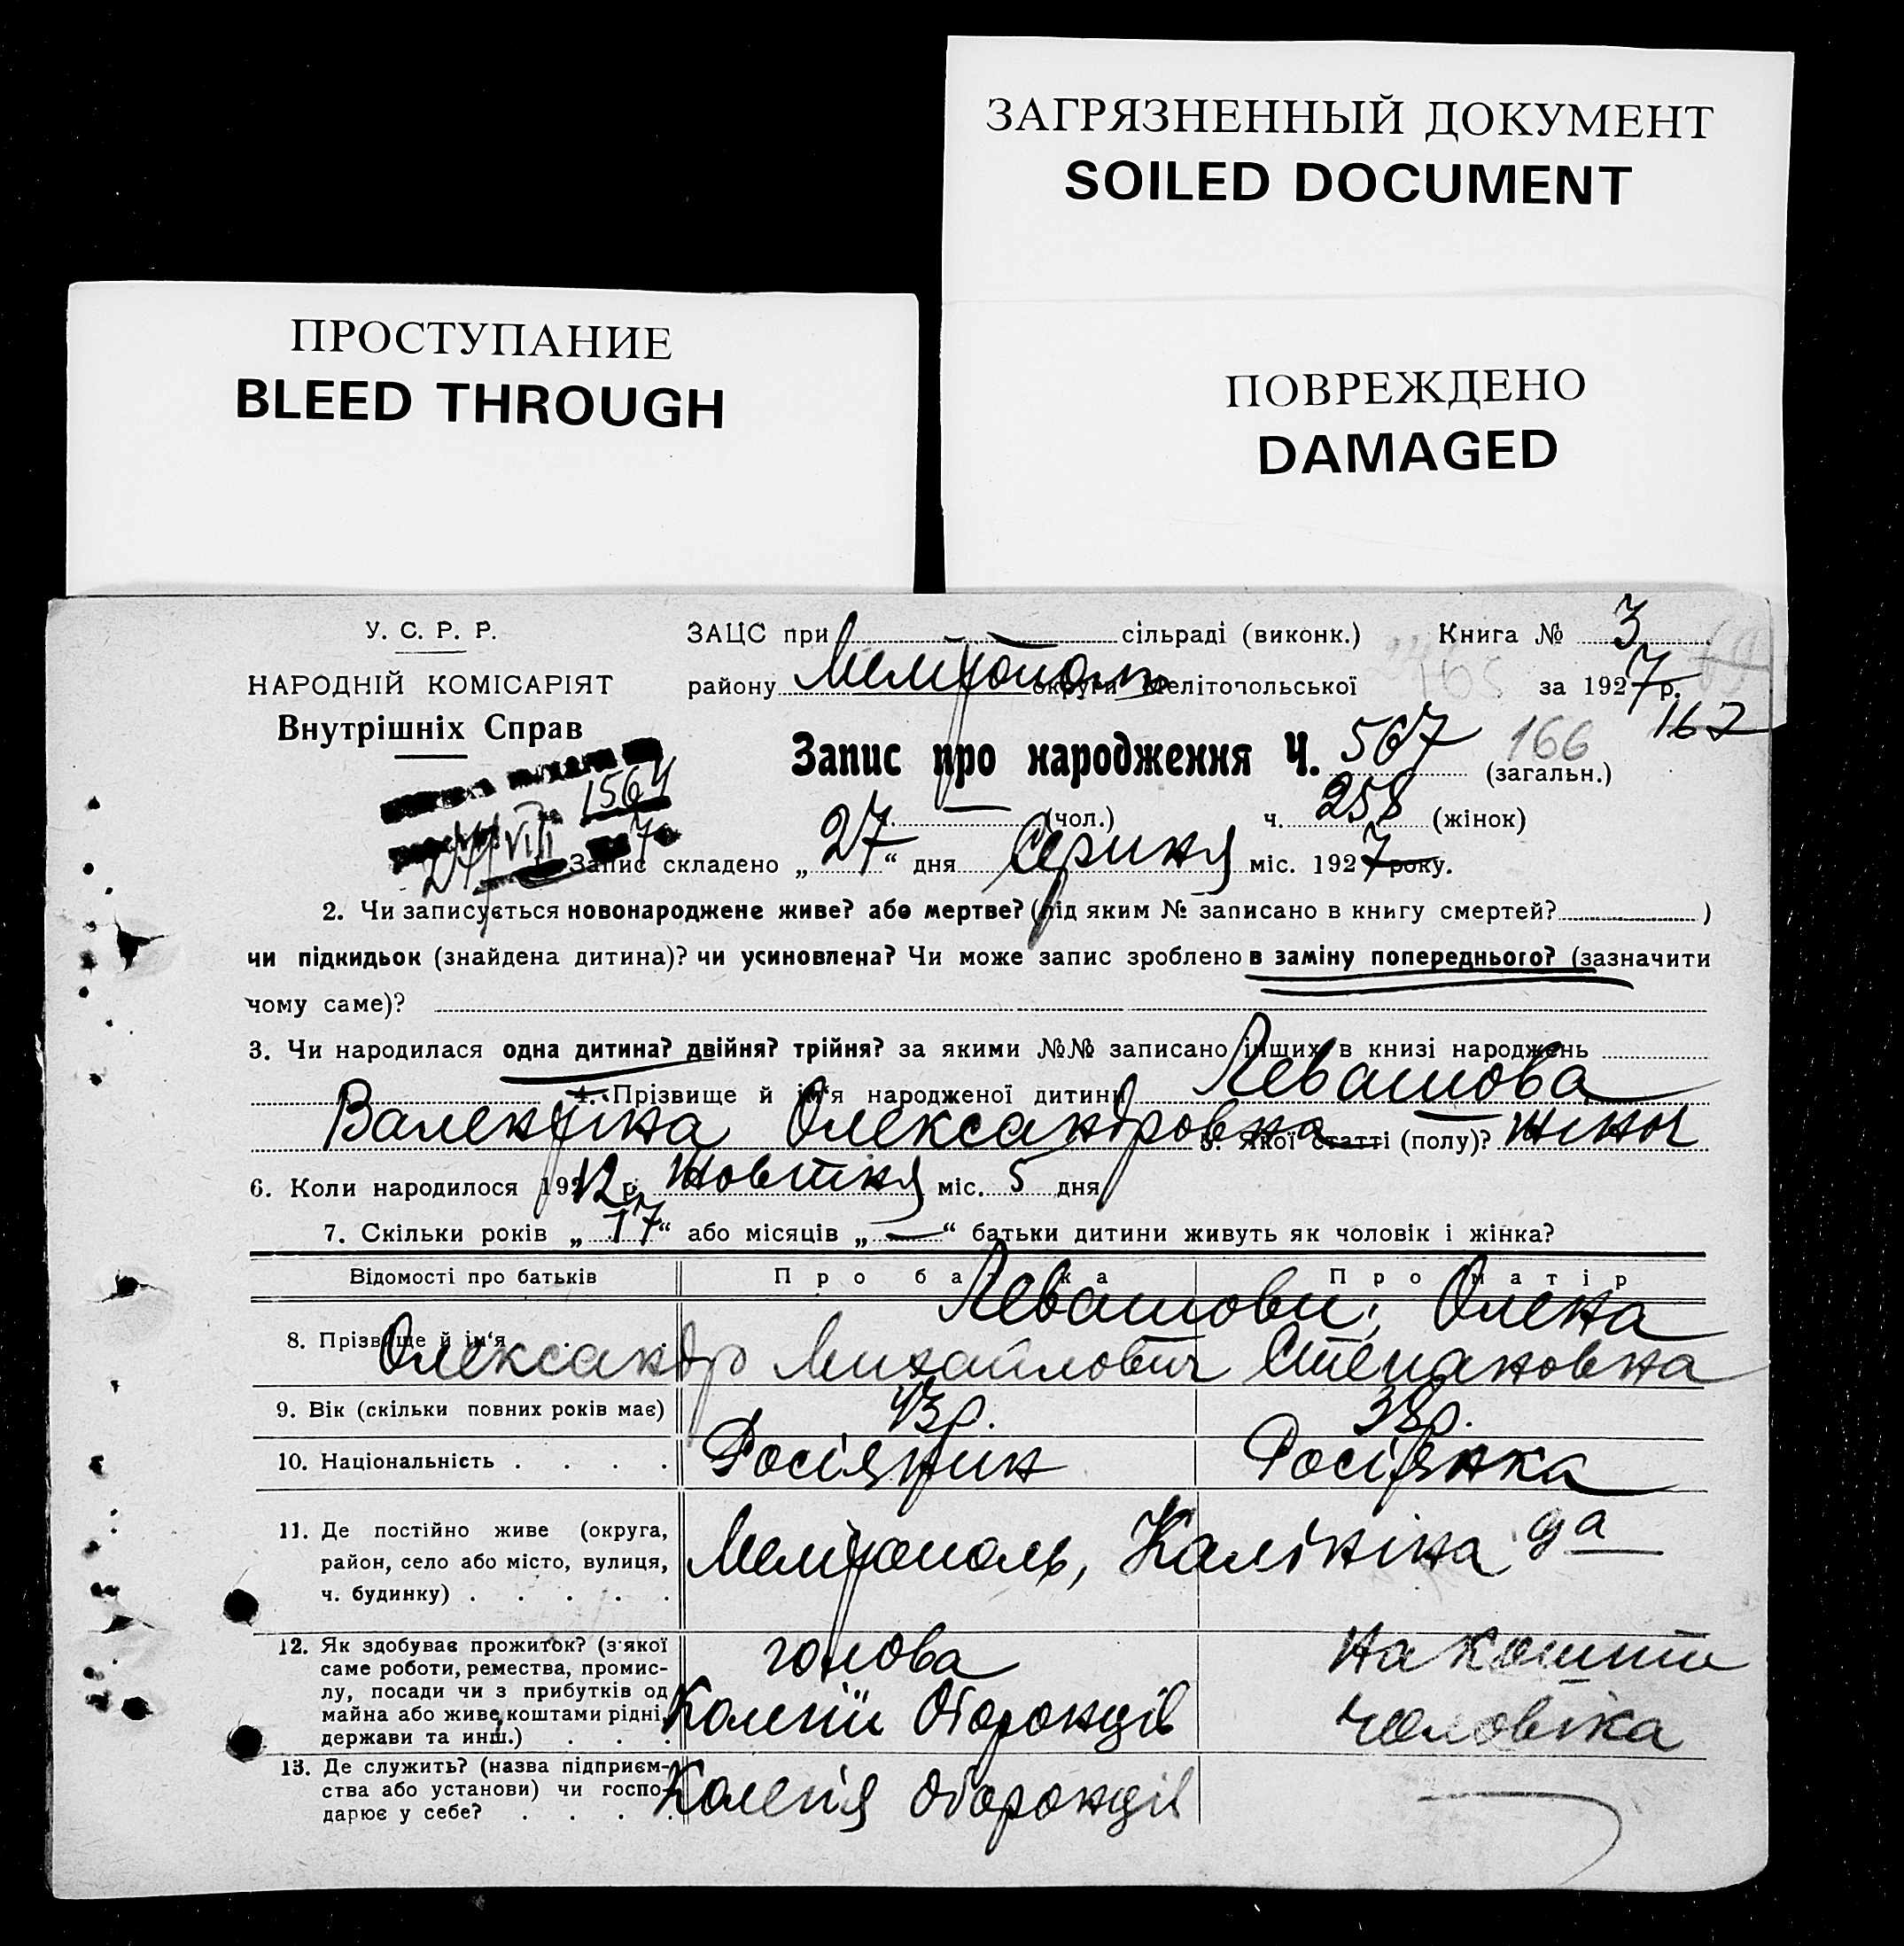 ЗАГРЯЗНЕННЫЙ ДОКУМЕНТ
SOILED DOCUMENT
ПРОСТУПАНИЕ
BLEED THROUGH
ПОВРЕЖДЕНО
DAMAGED
У. С. Р. Р.
НАРОДНІЙ КОМІСАРІЯТ
Внутрішніх Справ
1564
24/VIII 7
ЗАЦС при — сільраді (виконк.) Книга № 3
району Мелітополь округи Мелітопольської за 1927 р.
167
Запис про народження Ч. 567 (загальн.) 166
— (чол.) ч. 258 (жінок)
Запис складено „27“ дня Серпня міс. 1927 року.
2. Чи записується новонароджене живе? або мертве? (під яким № записано в книгу смертей? )
чи підкидьок (знайдена дитина)? чи усиновлена? Чи може запис зроблено в заміну попереднього? (зазначити
чому саме)?
3. Чи народилася одна дитина? двійня? трійня? за якими №№ записано інших в книзі народжень
4. Прізвище й ім'я народженої дитини Левашова
Валентіна Олександровна 5. Якої статті (полу)? жіноч
6. Коли народилося 1912 р. Жовтня міс. 5 дня
7. Скільки років „17“ або місяців „—“ батьки дитини живуть як чоловік і жінка?
Відомості про батьків Про батька Про матір
Левашови; Олена
8. Прізвище й ім'я Олександр Михайлович Степановна
9. Вік (скільки повних років має) 43 р. 38 р.
10. Національність . . . . Росіянин Росіянка
11. Де постійно живе (округа,
район, село або місто, вулиця, Мелітополь, Калініна 9а
ч. будинку) . . . . .
12. Як здобуває прожиток? (з якої голова на кошти
саме роботи, ремества, промис-
лу, посади чи з прибутків од Колегії Оборонців чоловіка
майна або живе коштами рідні,
держави та инш.) . . .
13. Де служить? (назва підприєм-
ства або установи) чи госпо- Колегія оборонців —
дарює у себе? . . . .